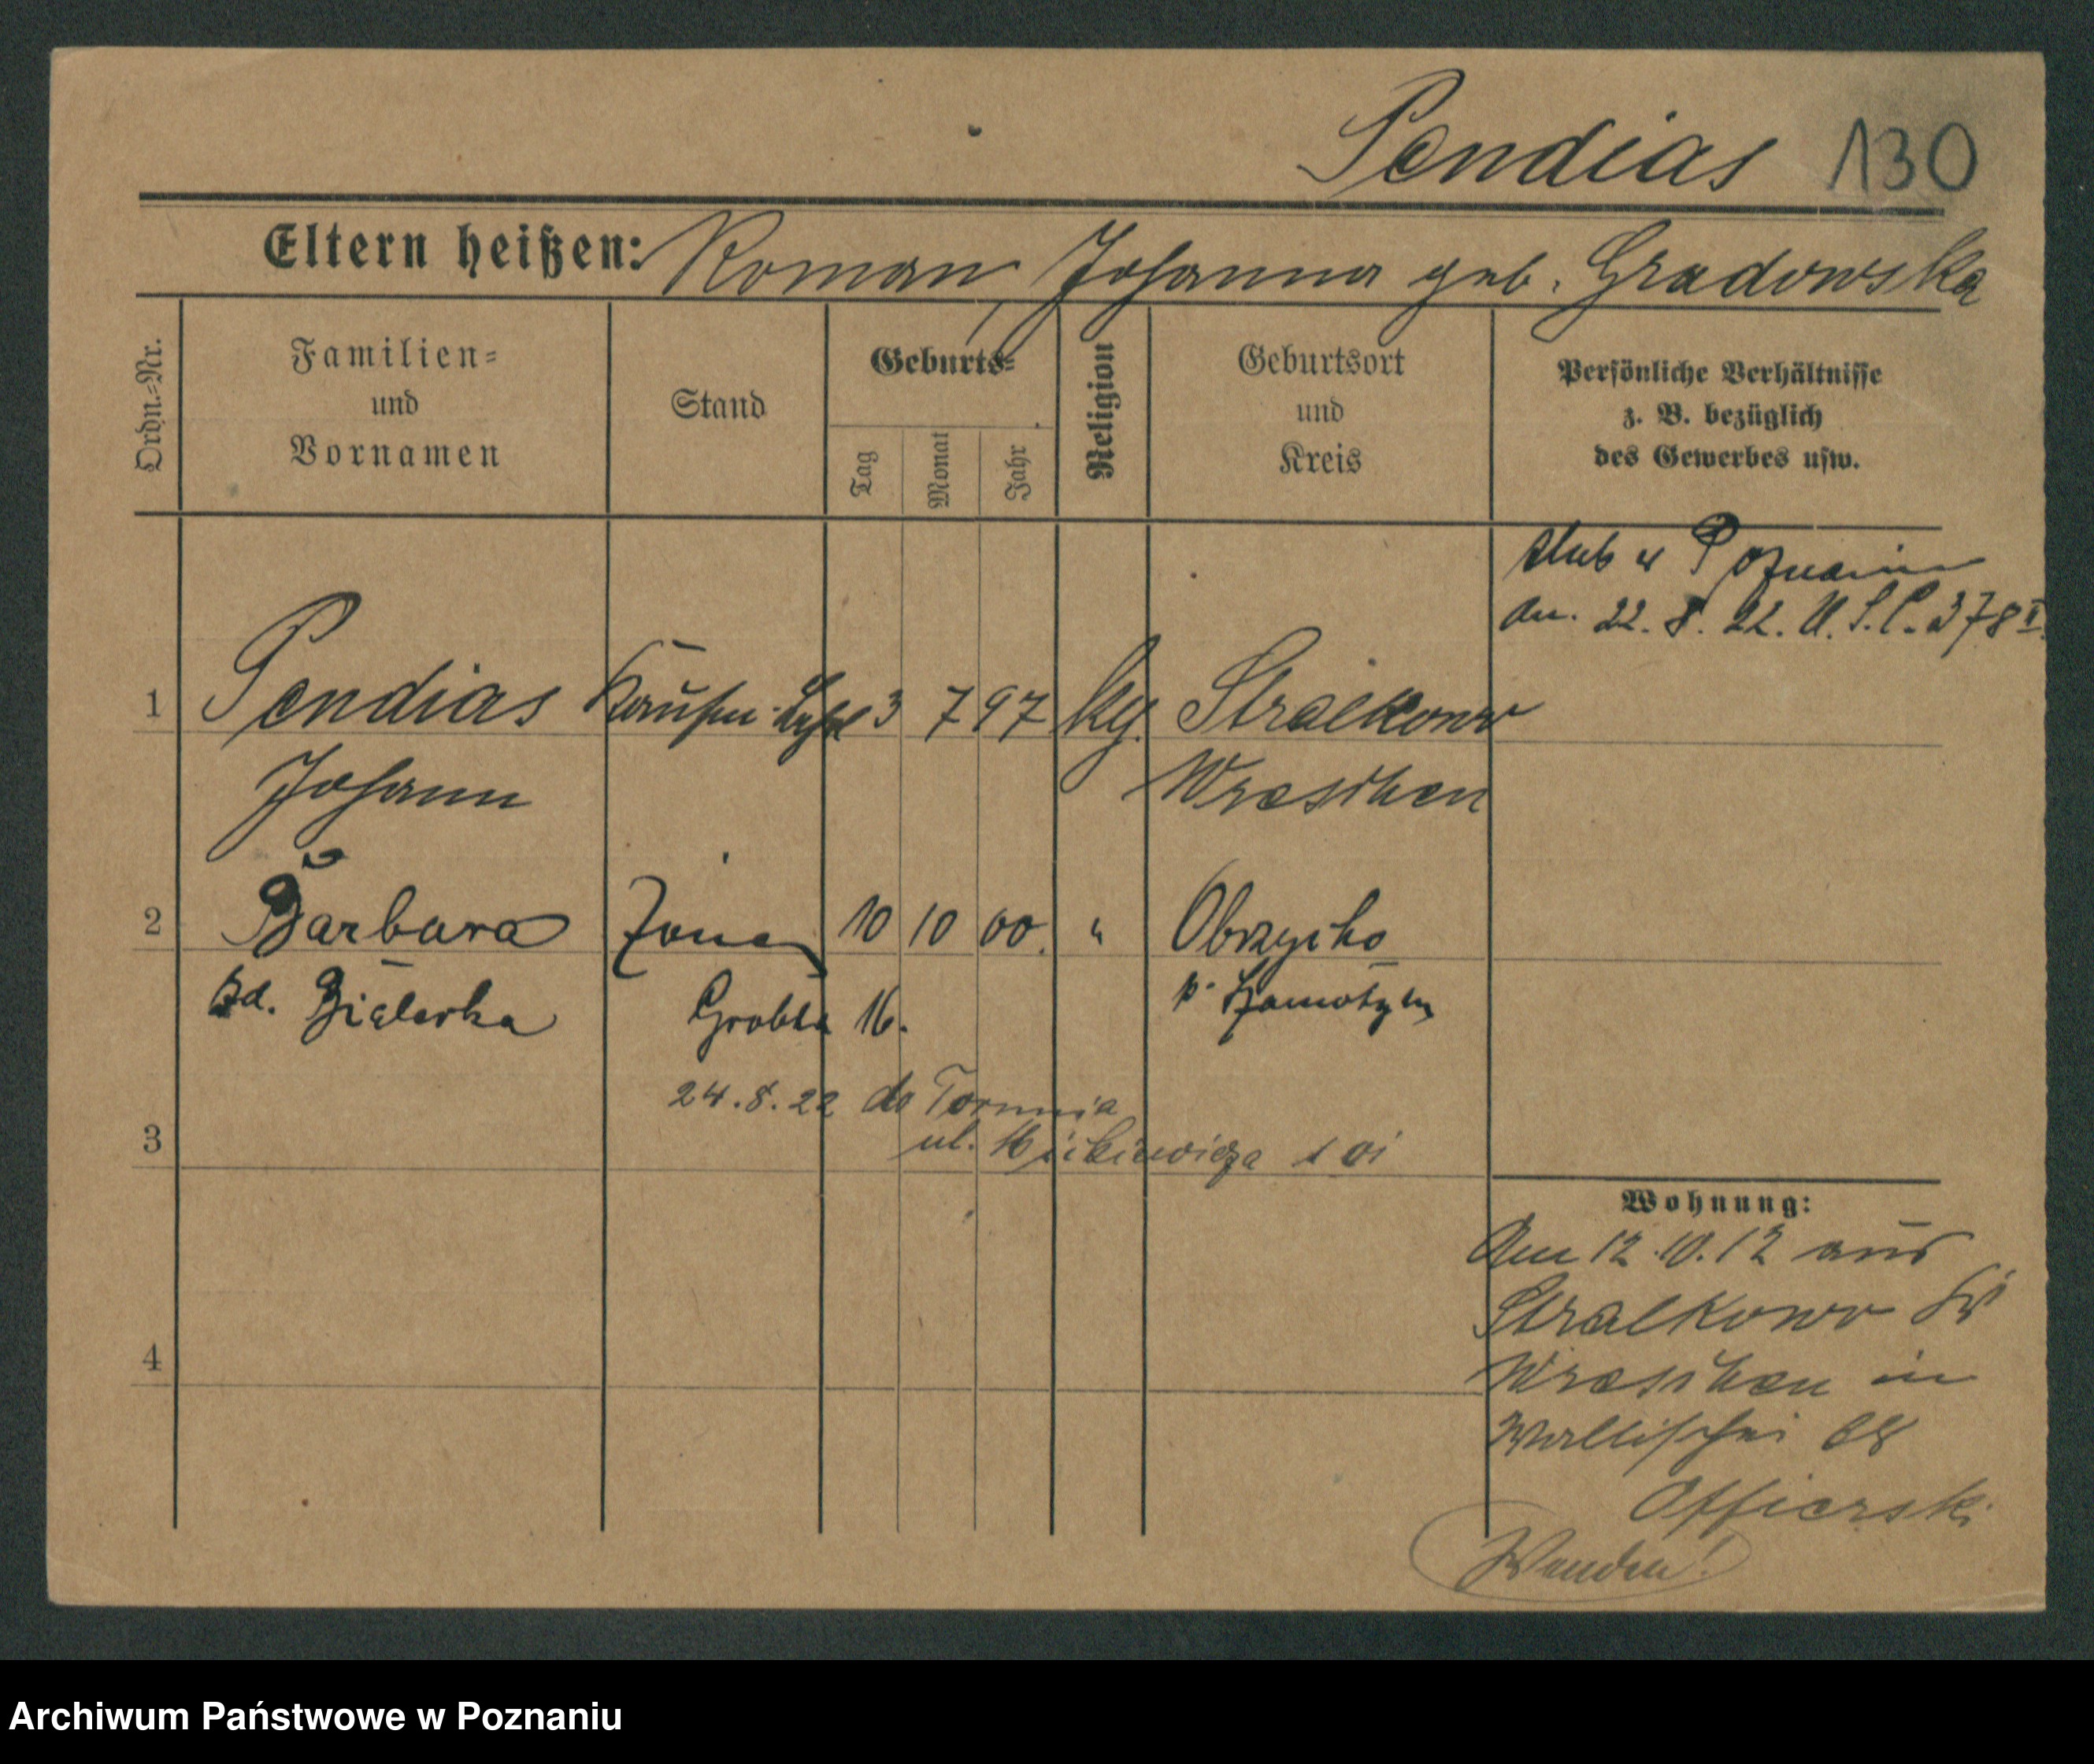 Pendias 130
Eltern heißen: Roman, Johanna geb. Gradowska
Ordn.-Nr.
Familien-
und
Vornamen
Stand
Geburts-
Tag
Monat
Jahr
Religion
Geburtsort
und
Kreis
Persönliche Verhältnisse
z. B. bezüglich
des Gewerbes usw.
ślub w Poznaniu
dn. 22. 8. 22. U.S.C. 378 II
1 Pendias 3 7 97 Stralkowo
Johann Wreschen
2 Barbara żona 10 10 00. " Obrzycko
zd. Grobla 16. p. Szamotuły
24.8.22 do Torunia
3 ul. Mickiewicza
4
Wohnung:
Am 12.10.12 aus
Stralkowo Kr
Wreschen in
Wallischei
Offierski
Wenden!
Archiwum Państwowe w Poznaniu